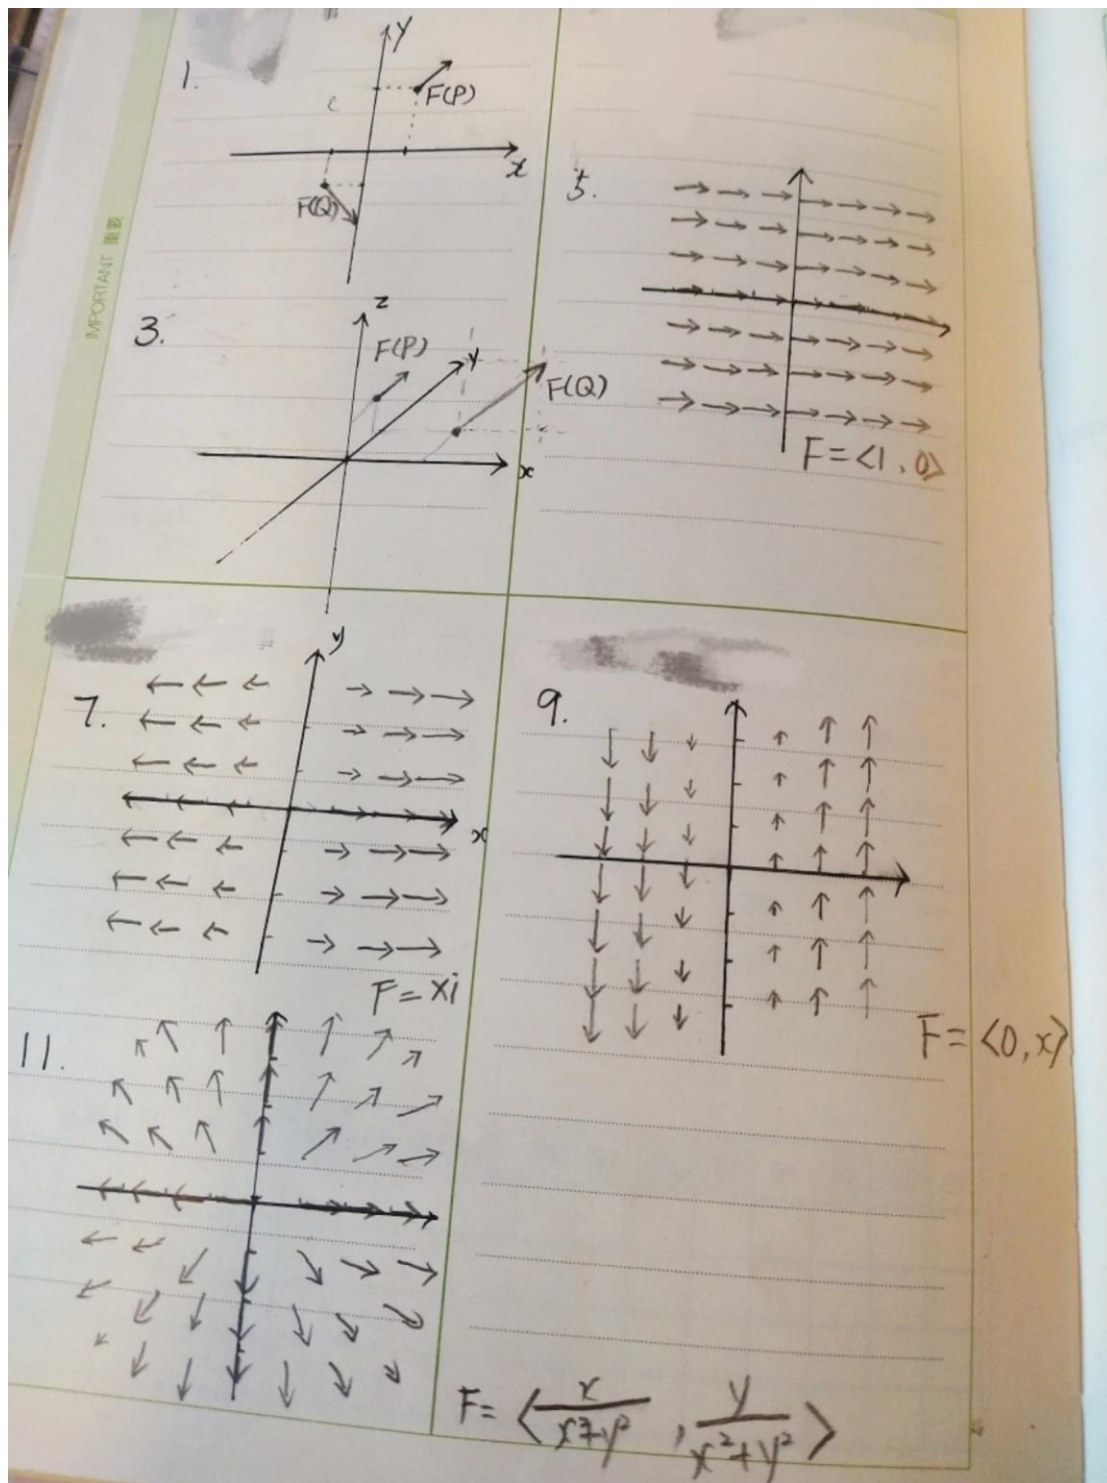 IMPORTANT 重要
1.
y
F(P)
x
F(Q)
3.
z
F(P)
y
F(Q)
x
5.
F=<1,0>
7.
y
x
F=xi
9.
F=<0,x>
11.
F=<x/x²+y², y/x²+y²>